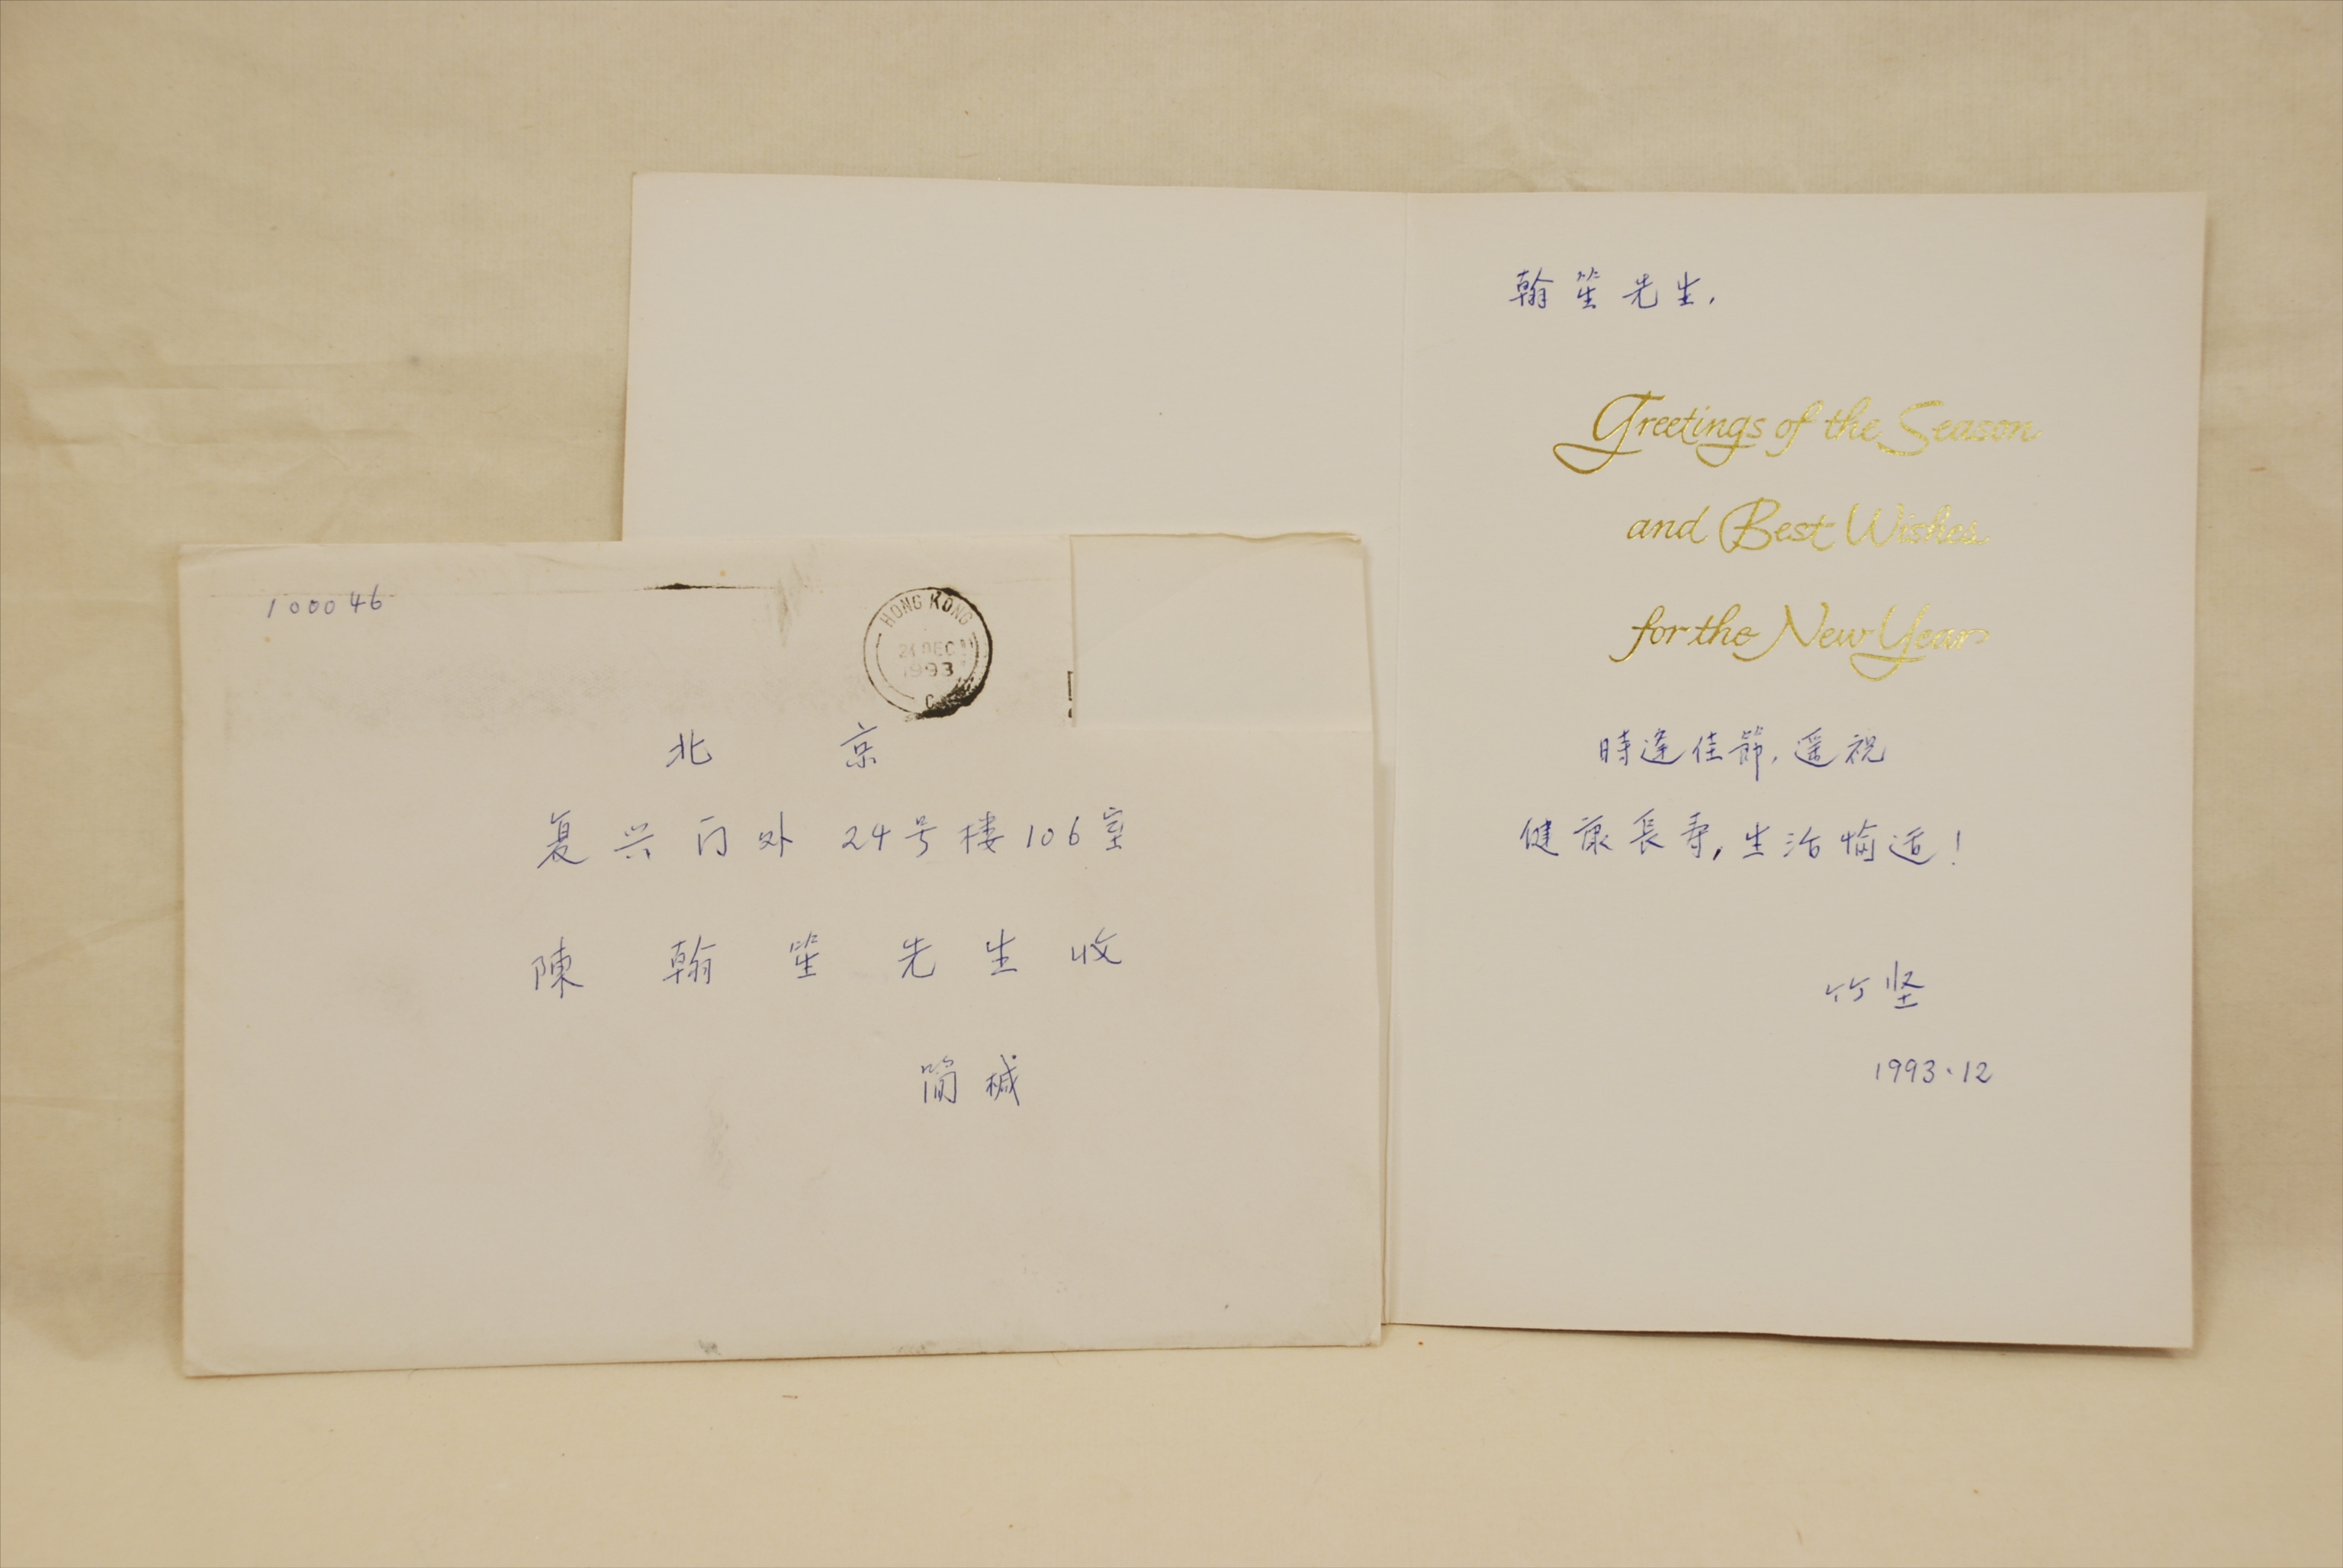 100046
HONG KONG
DEC
1993
C
北 京
复兴门外 24号楼106室
陳 翰 笙 先 生 收
简 缄
翰笙先生,
Greetings of the Season
and Best Wishes
for the New Year
時逢佳節,遥祝
健康長寿,生活愉适!
竹坚
1993.12